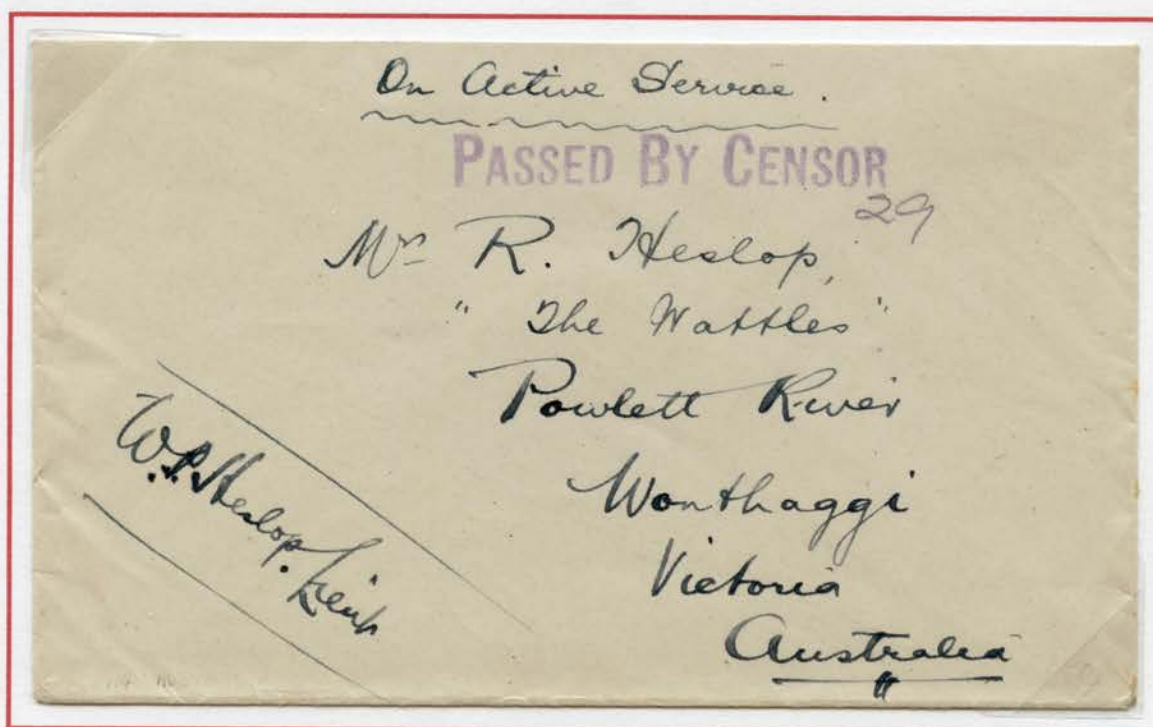 On Active Service.
PASSED BY CENSOR
29
Mrs R. Heslop,
"The Wattles"
Powlett River
Wonthaggi
Victoria
Australia
W. Heslop. Lieut